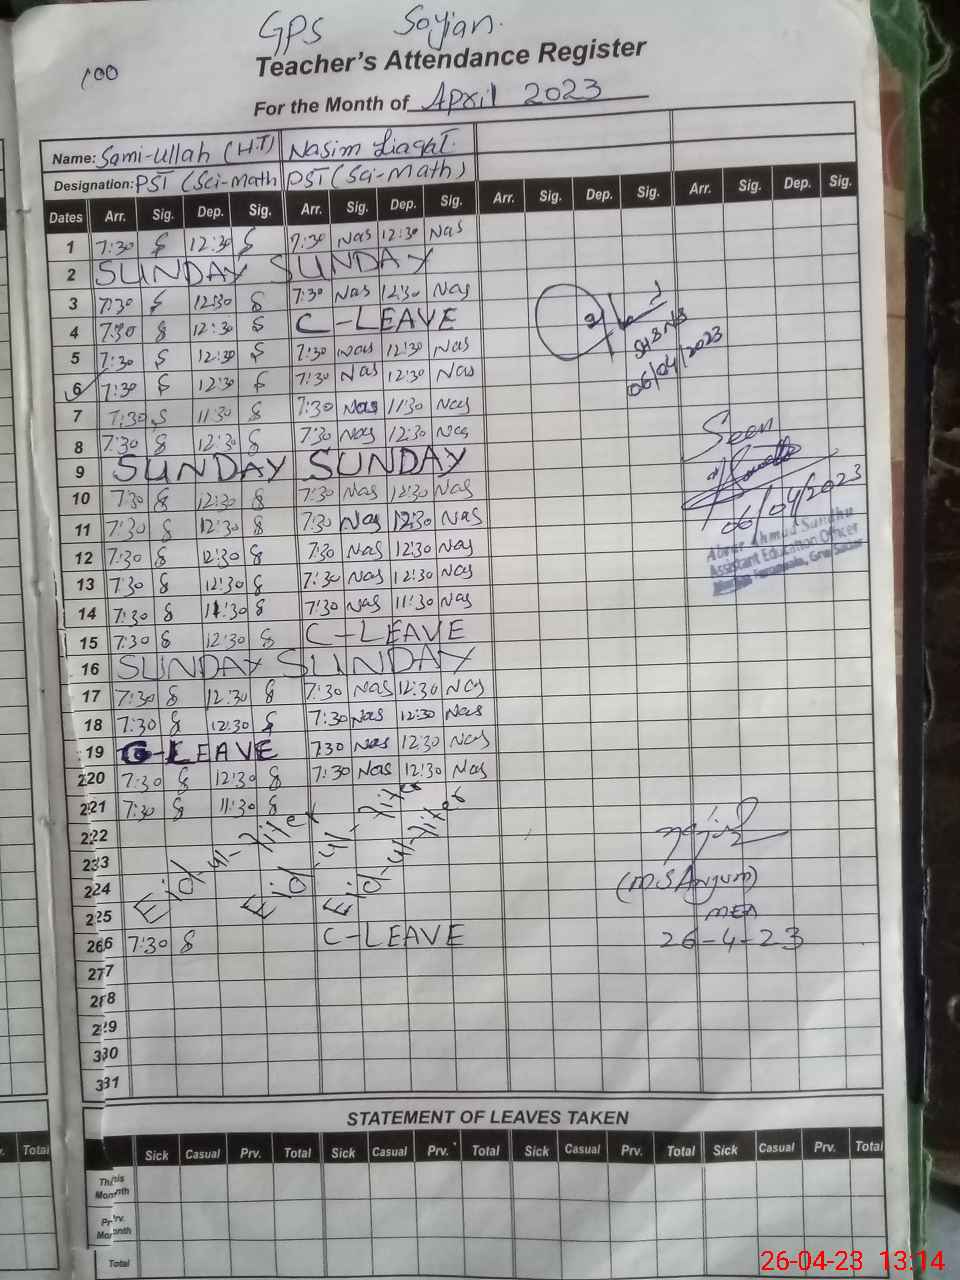 GPS Sojian.
Teacher's Attendance Register
100
For the Month of April 2023
Name: Sami-ullah (H.T) Nasim Liaqat.
Designation: PST (Sci-Math) PST (Sci-Math)
Dates Arr. Sig. Dep. Sig. Arr. Sig. Dep. Sig. Arr. Sig. Dep. Sig. Arr. Sig. Dep. Sig.
1 7:30 12:30 7:30 Nas 12:30 Nas
2 SUNDAY SUNDAY
3 7:30 12:30 7:30 Nas 12:30 Nas
4 7:30 12:30 C-LEAVE
5 7:30 12:30 7:30 Nas 12:30 Nas
6 7:30 12:30 7:30 Nas 12:30 Nas
06/04/2023
7 7:30 11:30 7:30 Nas 11:30 Nas
8 7:30 12:30 7:30 Nas 12:30 Nas
Seen
9 SUNDAY SUNDAY
10 7:30 12:30 7:30 Nas 12:30 Nas
06/04/2023
11 7:30 12:30 7:30 Nas 12:30 Nas
12 7:30 12:30 7:30 Nas 12:30 Nas
Abrar Ahmad Sandhu
Assistant Education Officer
13 7:30 12:30 7:30 Nas 12:30 Nas
14 7:30 11:30 7:30 Nas 11:30 Nas
15 7:30 12:30 C-LEAVE
16 SUNDAY SUNDAY
17 7:30 12:30 7:30 Nas 12:30 Nas
18 7:30 12:30 7:30 Nas 12:30 Nas
19 C-LEAVE 7:30 Nas 12:30 Nas
20 7:30 12:30 7:30 Nas 12:30 Nas
21 7:30 11:30
22
23
24
25
Eid-ul-fiter Eid-ul-fiter Eid-ul-fiter
(M.S Anjum)
MEA
26 7:30 C-LEAVE 26-4-23
27
28
29
30
31
STATEMENT OF LEAVES TAKEN
Total Sick Casual Prv. Total Sick Casual Prv. Total Sick Casual Prv. Total Sick Casual Prv. Total
This Month
Prv. Month
Total
26-04-23 13:14